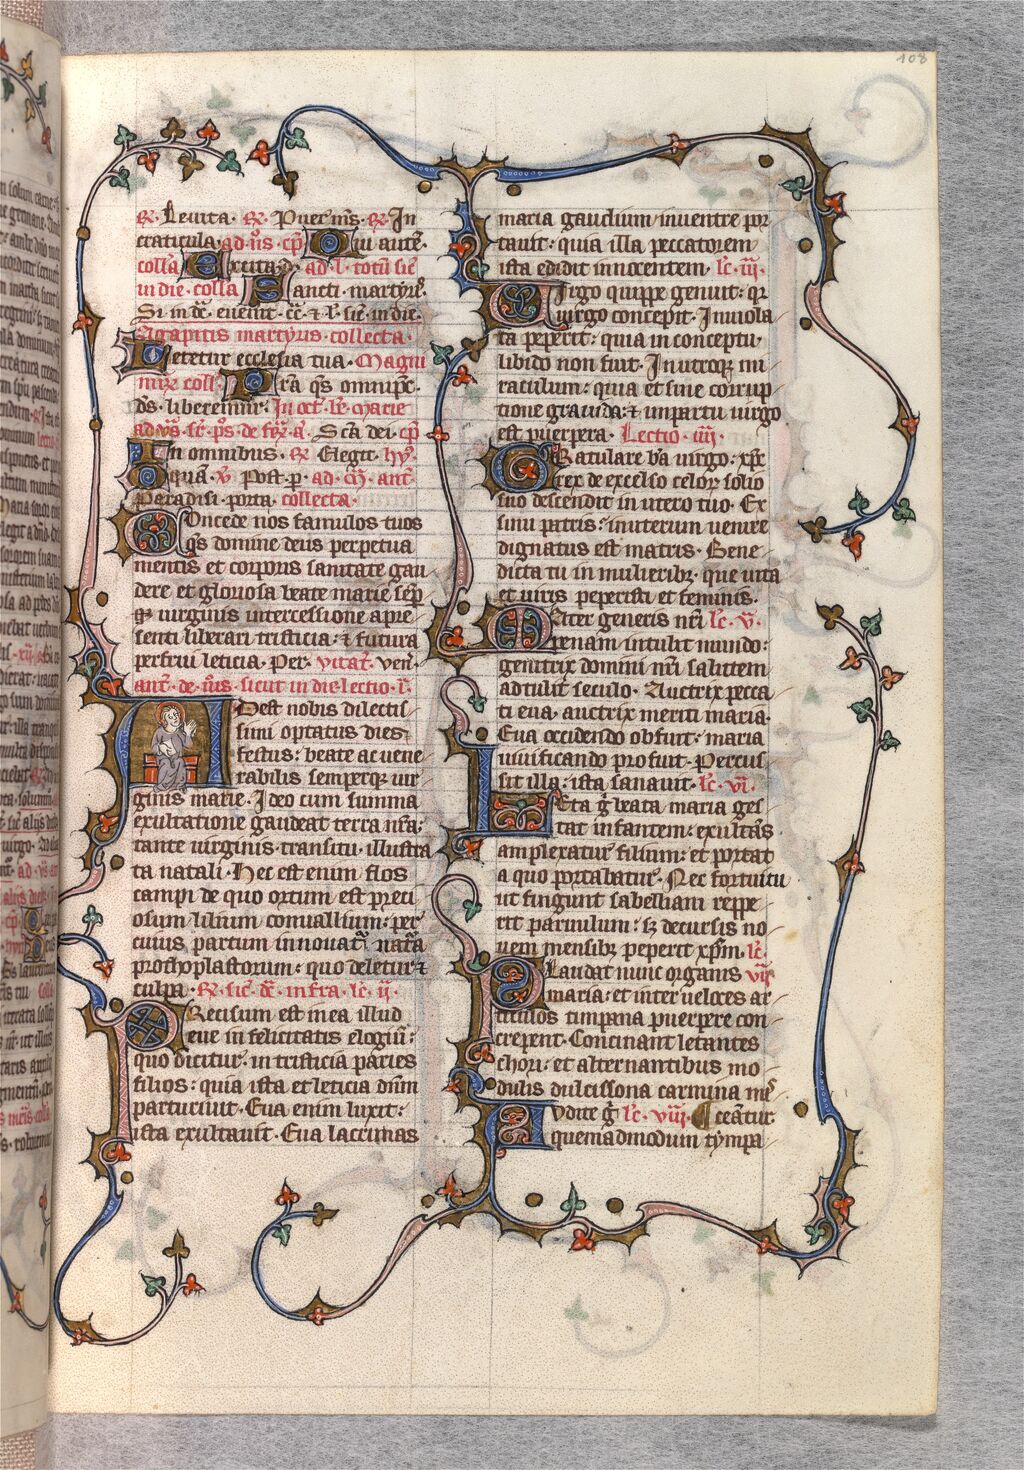 108
R. Levita. R. Puer m̄s. R. In
craticula. ad m̄s cp̄ Qui aute̅.
coll̄a Excita d̄. ad .v. totū sic̄
in die. coll̄a Sancti martyr̄.
Si in dn̄c̄. euen̄it. c̄c̄. & l̄. sic̄. in die.
Agapitis martyris. collecta.
Letetur ecclesia tua. Magni
mr̄ꝝ coll̄. Prā q̄s omnip̄c̄.
d̄s. liberemur. In oct̄. b̄e. marie
Sc̄a dei. cp̄
In omnibus. R. Elegit. hȳ.
Quā. v̄. Post .p. ad. m̄. ant̄.
Paradisi porta. collecta.
Concede nos famulos tuos
q̄s domine deus perpetua
mentis et corporis sanitate gau
dere et gloriosa beate marie semp̄
qꝫ uirginis intercessione a pre
senti liberari tristicia: & futura
perfrui leticia. Per. vitat̄. ven̄.
ant̄. de. m̄s. sicut in die lectio .i.
Adest nobis dilectis
simi optatus dies
festus: beate ac uene
rabilis semperqꝫ uir
ginis marie. Ideo cum summa
exultatione gaudeat terra nr̄a:
tante uirginis transitu. illustra
ta natali. Hec est enim flos
campi de quo ortum est preci
osum lilium conuallium: per
cuius partum innouat̄ nat̄a
prothoplastorum: quo deletur &
culpa. R. sic̄. dc̄. infra. lc̄. ii.
Recisum est in ea illud
eue in felicitatis elogiū:
quo dicitur. in tristicia paries
filios: quia ista et leticia dn̄m
parturiuit. Eua enim luxit:
ista exultauit. Eua lacrimas
maria gaudium in uentre por
tauit: quia illa peccatorem
ista edidit innocentem. lc̄. iii.
Virgo quippe genuit: qꝛ
uirgo concepit. Inuiola
ta peperit: quia in conceptu
libido non fuit. In utroqꝫ mi
raculum: quia et sine corrup
tione grauida: & in partu uirgo
est puerpera. Lectio .iiii.
Gratulare b̄a uirgo: xp̄c
rex de excelso celoꝝ solio
suo descendit in utero tuo. Ex
sinu patris: in uterum uenire
dignatus est matris. Bene
dicta tu in mulieribꝫ. que uita
et uiris peperisti et feminis.
Mater generis nr̄i lc̄. v.
penam intulit mundo:
genitrix domini nr̄i salutem
ad tulit seculo. Auctrix pecca
ti eua. auctrix meriti maria.
Eua occidendo obfuit: maria
uiuificando profuit. Percus
sit illa: ista sanauit. lc̄. vi.
Leta g̊ beata maria ges
tat infantem: exultās
amplexatur̄ filium: et portat
a quo portabatur̄. Nec fortuitu
ut fingunt sabelliani reppe
rit paruulum: sꝫ decursis no
uem mensibꝫ peperit xp̄m. lc̄.
Plaudat nunc organis vii
maria: et inter ueloces ar
ticulos timpana puerpere con
crepent. Concinant letantes
chori: et alternantibus mo
dulis dulcissona carmina m̄s
Audite g̊ lc̄. viii. ceātur
quemadmodum tympa